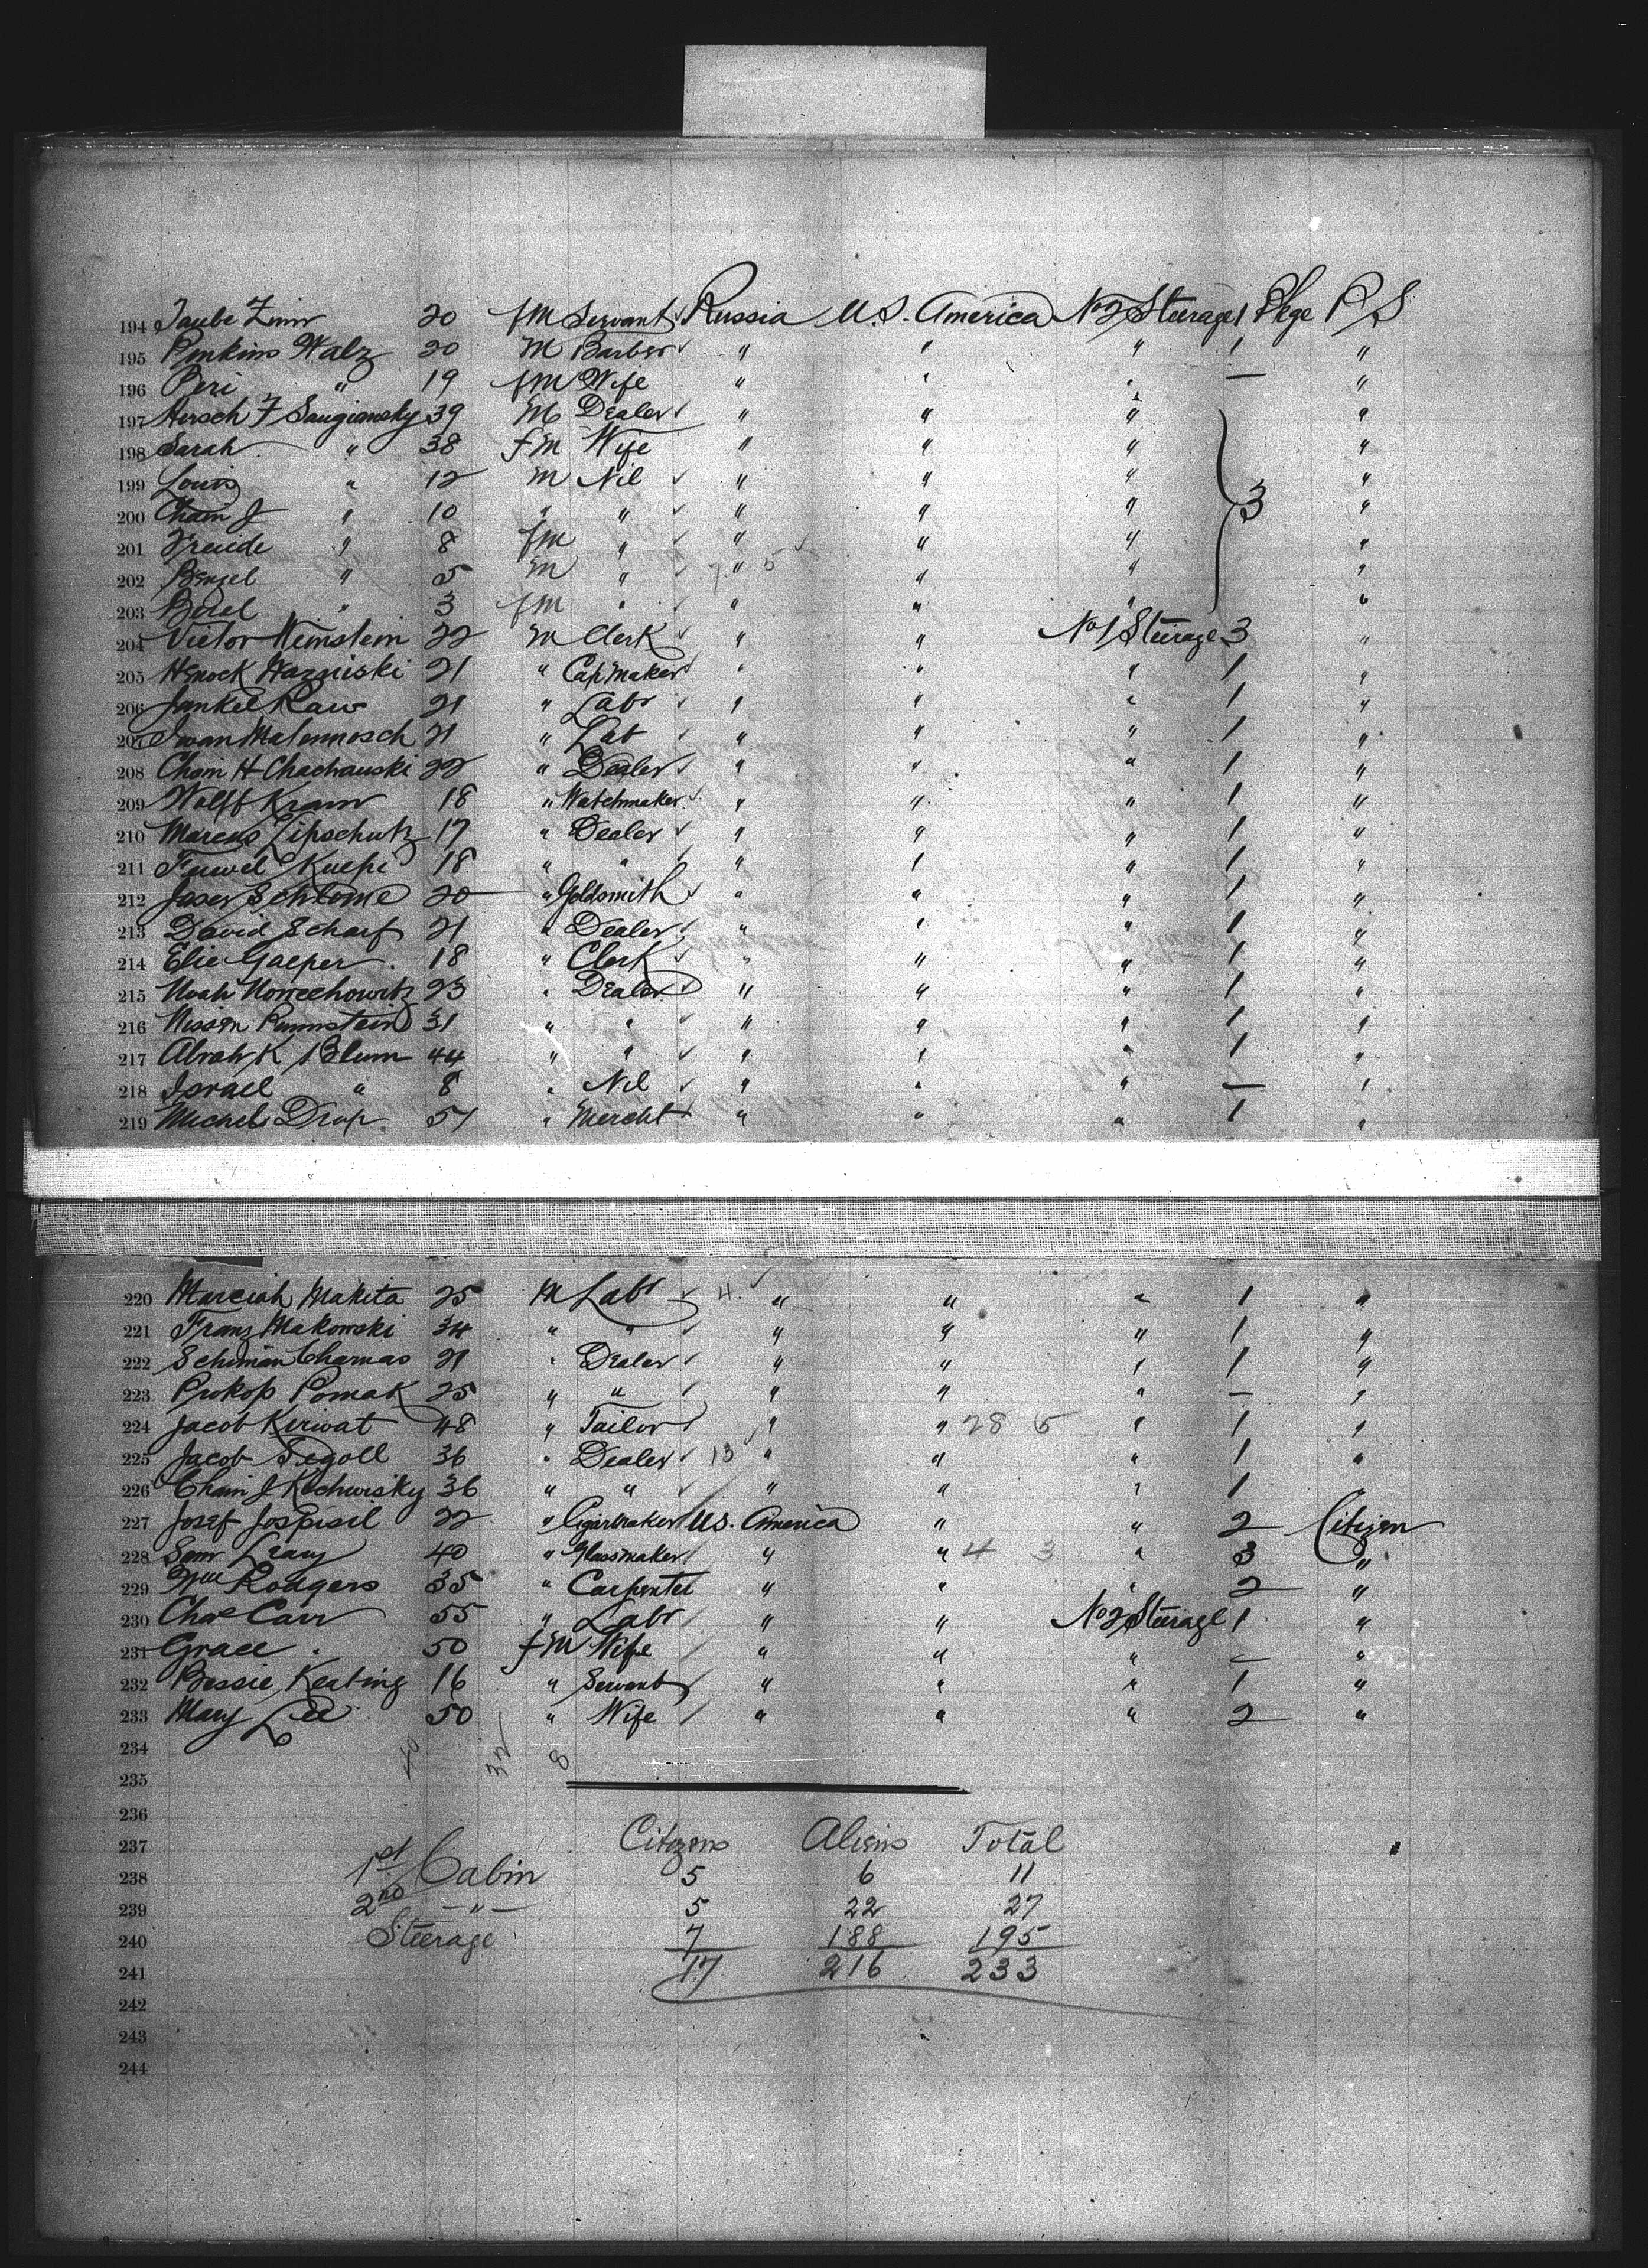 194 Taube Zinn 20 fm Servant Russia U.S. America No 2 Steerage 1 Pkge P S
195 Pinkins Walz 20 M Barber " " " 1 "
196 Peri " 19 fm Wife " " " — "
197 Hersch F Saugiansky 39 M Dealer " " " "
198 Sarah " 38 fm Wife " " " "
199 Louis " 12 m Nil " " " "
200 Chaim J " 10 " " " " " 3 "
201 Freude " 8 fm " " " " "
202 Benzel " 5 m " " 5 " " "
203 " 3 fm " " " " "
204 Victor Weinstein 22 m Clerk " " No 1 Steerage 3 "
205 Henock Wazniski 21 " Capmaker " " " 1 "
206 Jankel Raw 21 " Labr " " " 1 "
207 Iwan Malennosch 21 " Lab " " " 1 "
208 Chain H Chachauski 22 " Dealer " " " 1 "
209 Wolff Kram 18 " Watchmaker " " " 1 "
210 Marcus Lipschutz 17 " Dealer " " " 1 "
211 Feiwel Kuepi 18 " " " " " 1 "
212 Joser Schlome 20 " Goldsmith " " " 1 "
213 David Scharf 21 " Dealer " " " 1 "
214 Elie Gaeper 18 " Clerk " " " 1 "
215 Noah 23 " Dealer " " " 1 "
216 Nissen 31 " " " " " 1 "
217 Abrah K Blum 44 " " " " " 1 "
218 Israel " 8 " Nil " " " — "
219 Michel Drap 51 " Mercht " " " 1 "
220 Marciah Makita 25 M Labr 4 " " " 1 "
221 Franz Makowski 34 " " " " " 1 "
222 Schiman Charnas 21 " Dealer " " " 1 "
223 Prokop Pomak 25 " " " " " — "
224 Jacob Kirwat 48 " Tailor " " 28 5 " 1 "
225 Jacob Segoll 36 " Dealer 13 " " " 1 "
226 Chain J Kochwisky 36 " " " " " 1 "
227 Josef Jospisil 22 " Cigarmaker U.S. America " " 2 Citizen
228 Sam Crany 40 " Glassmaker " " 4 3 " 3 "
229 Wm Rodgers 35 " Carpenter " " " 2 "
230 Chas Carr 55 " Labr " " No 2 Steerage 1 "
231 Grace " 50 fm Wife " " " — "
232 Bessie Keating 16 " Servant " " " 1 "
233 Mary Lee 50 " Wife " " " 2 "
234 40 32 8
235
236
237 Citizens Aliens Total
238 1st Cabin 5 6 11
239 2nd — " — 5 22 27
240 Steerage 7 188 195
241 17 216 233
242
243
244